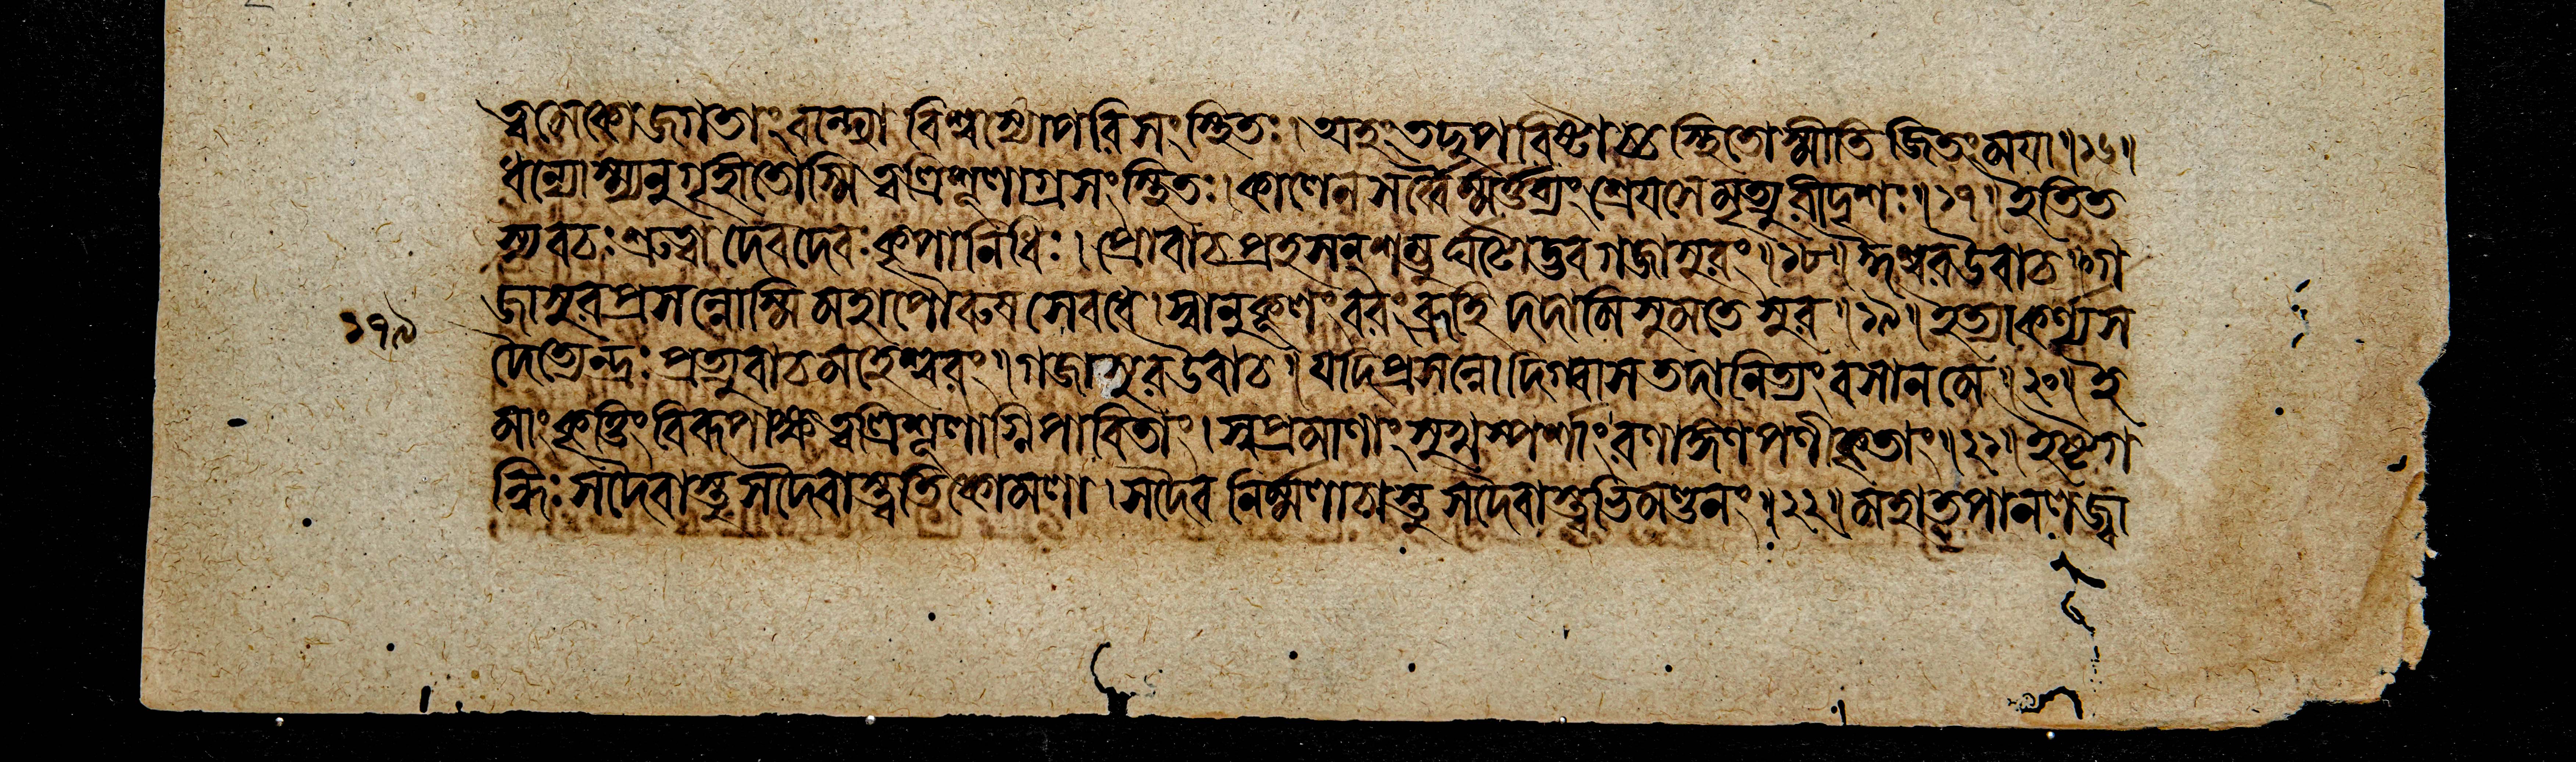 ত্বমেকো জগতাং বন্দ্যো বিশ্বস্যোপরি সংস্থিতঃ। অহং ত্বদুপরিষ্টাচ্চ স্থিতোস্মীতি জিতং ময়া॥১৬॥
ধন্যোস্ম্যনুগৃহীতোস্মি ত্বত্রিশূলাগ্রসংস্থিতঃ। কালেন সর্ব্বৈর্ম্মর্ত্তব্যং শ্রেয়সে মৃত্যুরীদৃশঃ॥১৭॥ ইতি ত
স্য বচঃ শ্রুত্বা দেবদেবঃ কৃপানিধিঃ। প্রোবাচ প্রহসন্ শম্ভুর্ঘটোদ্ভব গজাসুরং॥১৮॥ ঈশ্বর উবাচ॥ গ
১৭৯ জাসুর প্রসন্নোস্মি মহাপৌরুষসেবধে। স্বানুকূলং বরং ব্রূহি দদামি সুমতে সুর॥১৯॥ ইত্যাকর্ণ্য স
দৈত্যেন্দ্রঃ প্রত্যুবাচ মহেশ্বরং॥ গজাসুর উবাচ॥ যদি প্রসন্নো দিগ্বাস তদা নিত্যং বসান মে॥২০॥ ই
মাং কৃত্তিং বিরূপাক্ষ ত্বত্রিশূলাগ্নিপাবিতাং। সুপ্রমাণাং সুখস্পর্শাং রণাঙ্গণপণীকৃতাং॥২১॥ ইষ্টগ
ন্ধিঃ সদৈবাস্তু সদৈবাস্ত্বতিকোমলা। সদৈব নির্ম্মলাচাস্তু সদৈবাস্ত্বতিমণ্ডনং॥২২॥ মহাতপানলজ্বা